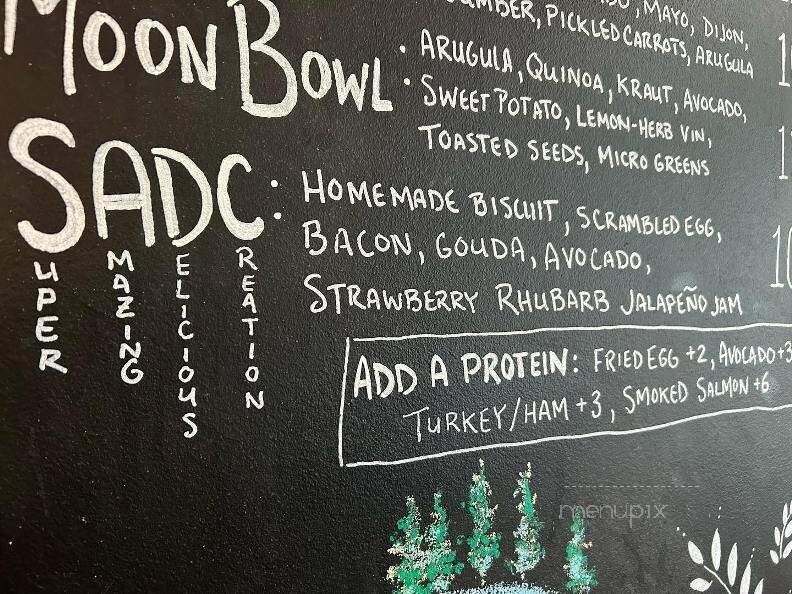 MAYO, DIJON,
PICKLED CARROTS, ARUGULA
MOON BOWL
• ARUGULA, QUINOA, KRAUT, AVOCADO,
• SWEET POTATO, LEMON-HERB VIN,
TOASTED SEEDS, MICRO GREENS
SADC:
HOMEMADE BISCUIT, SCRAMBLED EGG,
BACON, GOUDA, AVOCADO,
STRAWBERRY RHUBARB JALAPEÑO JAM
UPER
MAZING
ELICIOUS
REATION
ADD A PROTEIN: FRIED EGG +2, AVOCADO +3
TURKEY/HAM +3, SMOKED SALMON +6
menupix